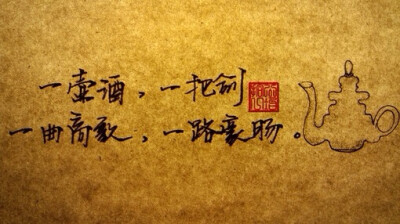 一壶酒，一把剑
一曲高歌，一路衷肠。